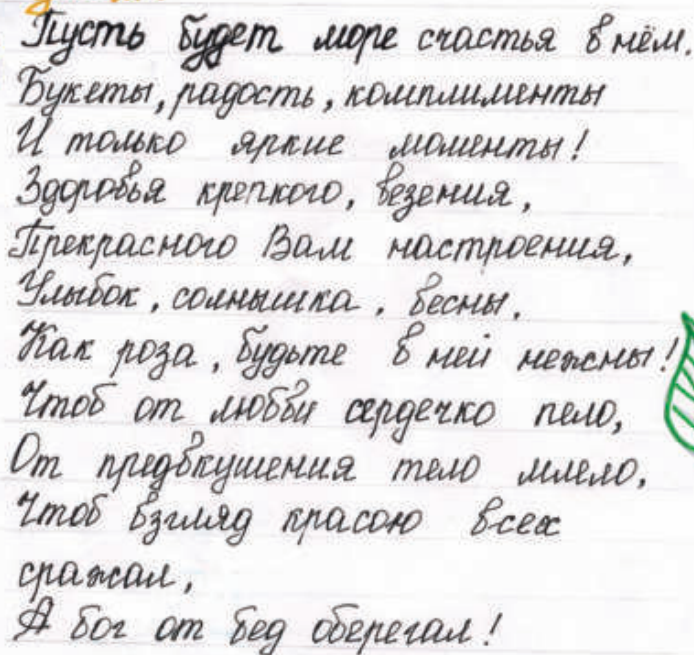 Пусть будет море счастья в нём.
Букеты, радость, комплименты
И только яркие моменты!
Здоровья крепкого, везения,
Прекрасного Вам настроения,
Улыбок, солнышка, весны.
Как роза, будьте в ней нежны!
Чтоб от любви сердечко пело,
От предвкушения тело млело,
Чтоб взгляд красою всех
сражал,
А бог от бед оберегал!